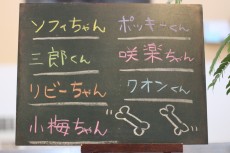 ソフィちゃん ポッキーくん
三郎くん 咲楽ちゃん
リビーちゃん クオンくん
小梅ちゃん